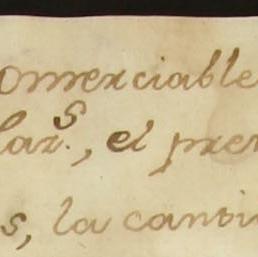 omerciable
lar.s, el pre
s, la canti